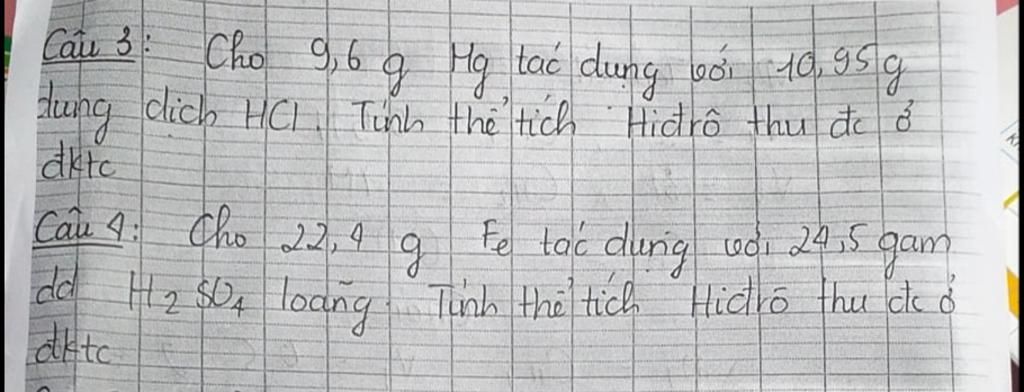 Câu 3: Cho 9,6 g Hg tác dụng với 10,95 g
dung dich HCl. Tính thể tích Hiđrô thu đc ở
đktc
Câu 4: Cho 22,4 g Fe tác dụng với 24,5 gam
dd H₂SO₄ loãng. Tính thể tích Hiđrô thu đc ở
đktc